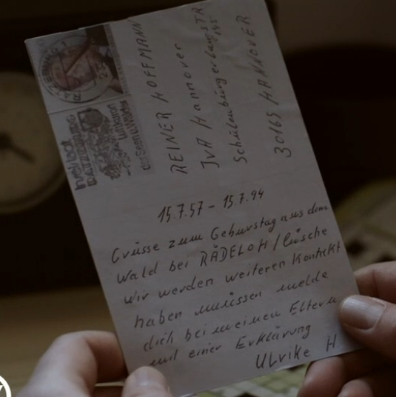 REINER HOFFMANN
JVA Hannover
30165 HANNOVER
15.7.57 – 15.7.94
Grüsse zum Geburstag aus dem
Wald bei RÄDELOH / Lüsche
Wir werden weiteren Kontakt
haben müssen melde
dich bei meinen Eltern
mit einer Erklärung
Ulrike H